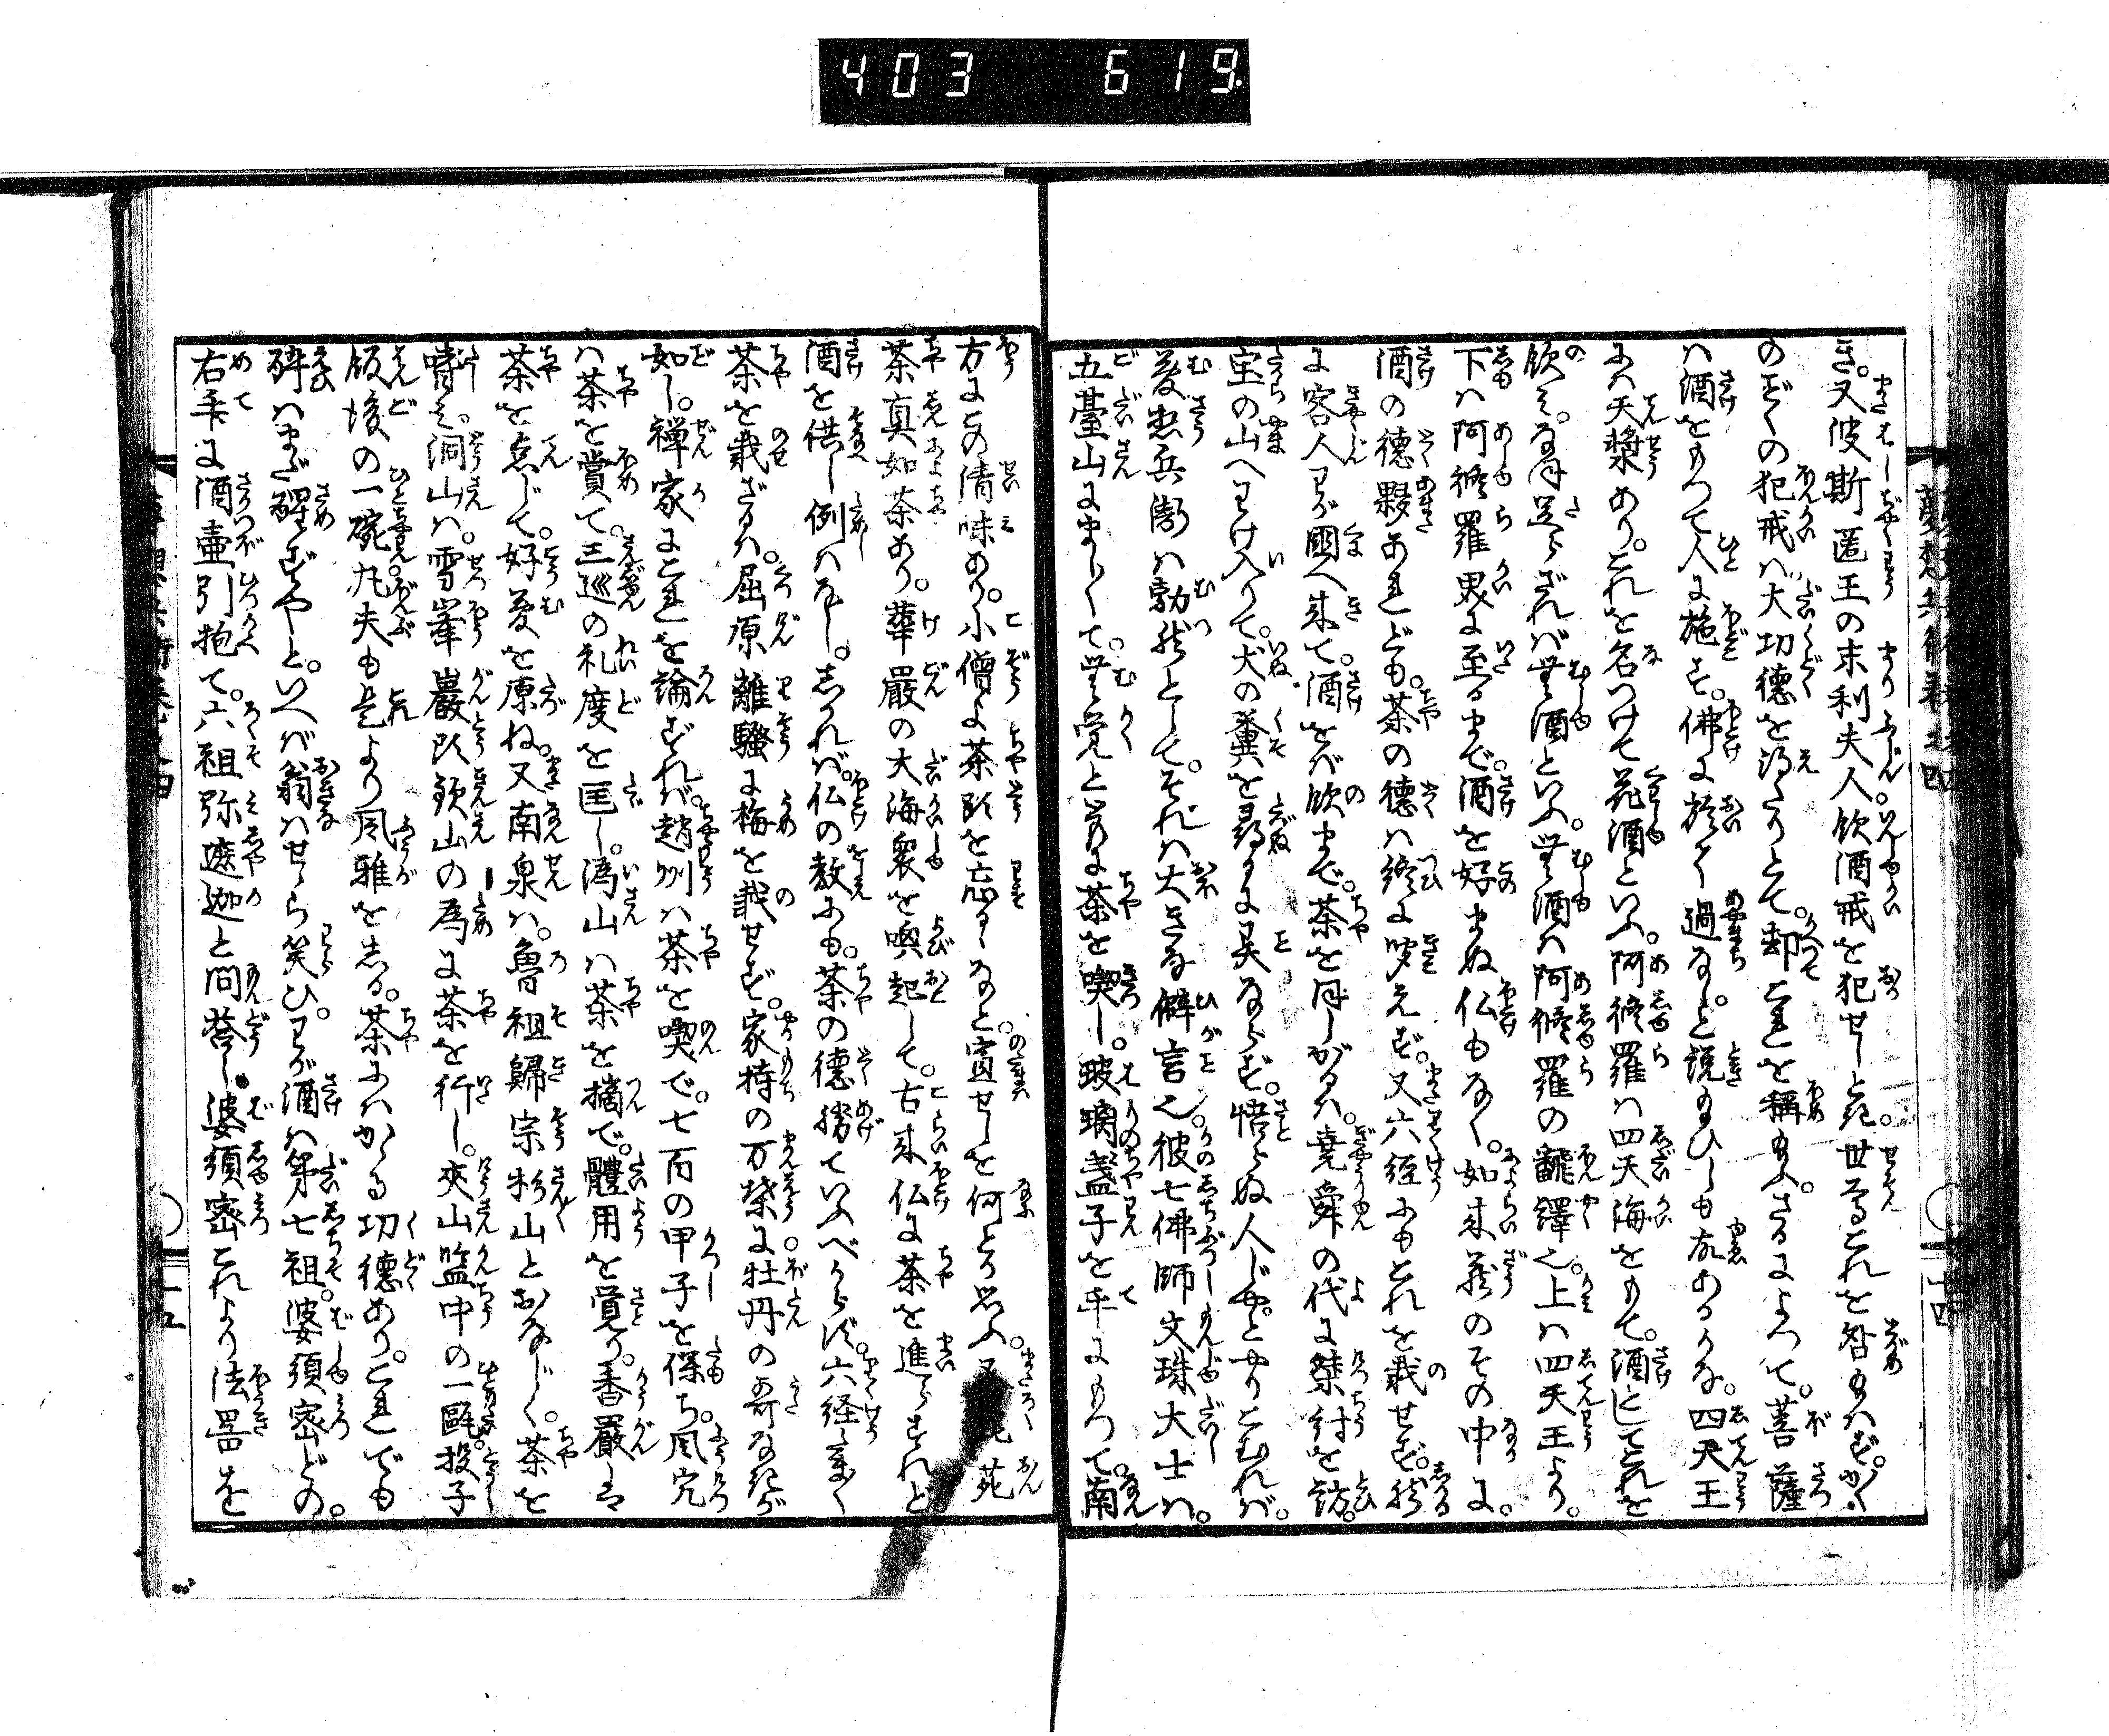 403 619.
き。又波斯匿王の末利夫人飲酒戒を犯せしと死世尊これを咎め給はず。かく
のごくの犯戒は大切徳を得たりとて。却これを稱給ふ。さるによつて。菩薩
は酒をもつて人に施す。佛に於て過なし。と説給ひしも故あるかな。四天王
には天漿あり。これを名つけて花酒といふ。阿修羅は四天海をもて。酒としてこれを
飲む。なほ足らざれば無酒といふ。無酒は阿修羅の飜譯也。上は四天王より。
下は阿修羅界に至るまで。酒を好まぬ仏もなく。如来蔵のその中に。
酒の徳夥あれども。茶の徳は終に聞えず。又六経にもこれを載せず。然
に客人わが國へ来て。酒をば飲まで。茶を用しがるは。堯舜の代に桀紂を訪。
宝の山へわけ入りて。犬の糞を尋るに異ならず。悟らぬ人じや。とやりこむれば。
夢想兵衛は勃然として。それは大きな僻言也。彼七佛師文珠大士は。
五臺山にまし〳〵て。無覚と共に茶を喫し。玻璃盞子を手にもつて。南
方にこの清味あり。小僧よ茶話を忘るゝなと。宣せしを何とか思ふ。又花苑
茶真如茶あり。華嚴の大海衆を喚起して。古来仏に茶を進らすれど
酒を供し例はなし。しかれば。仏の教にも。茶の徳勝ていふべからず。六経に多く
茶を載ざるは。屈原離騒に梅を載せず。家持の万葉に牡丹の哥なきが
如し。禅家にこれを論ずれば。趙州は茶を喫で。七百の甲子を保ち。風穴
は茶を賞て。三巡の礼度を匡し。潙山は茶を摘で。體用を覚り。香嚴は
茶を点じて。好夢を原ね。又南泉は。魯祖歸宗杉山とおなじく。茶を
嗜む。洞山は。雪峯巖頭欽山の為に茶を行し。夾山盌中の一甌。投子
飯後の一碗。凡夫も是より風雅をしる。茶にはかゝる功徳あり。これでも
酔はまだ醒ずやと。いへば翁はせゝら笑ひ。わが酒は第七祖。婆須密どの。
右手に酒壷引抱て。六祖弥遮迦と問荅し。婆須密これより法器を